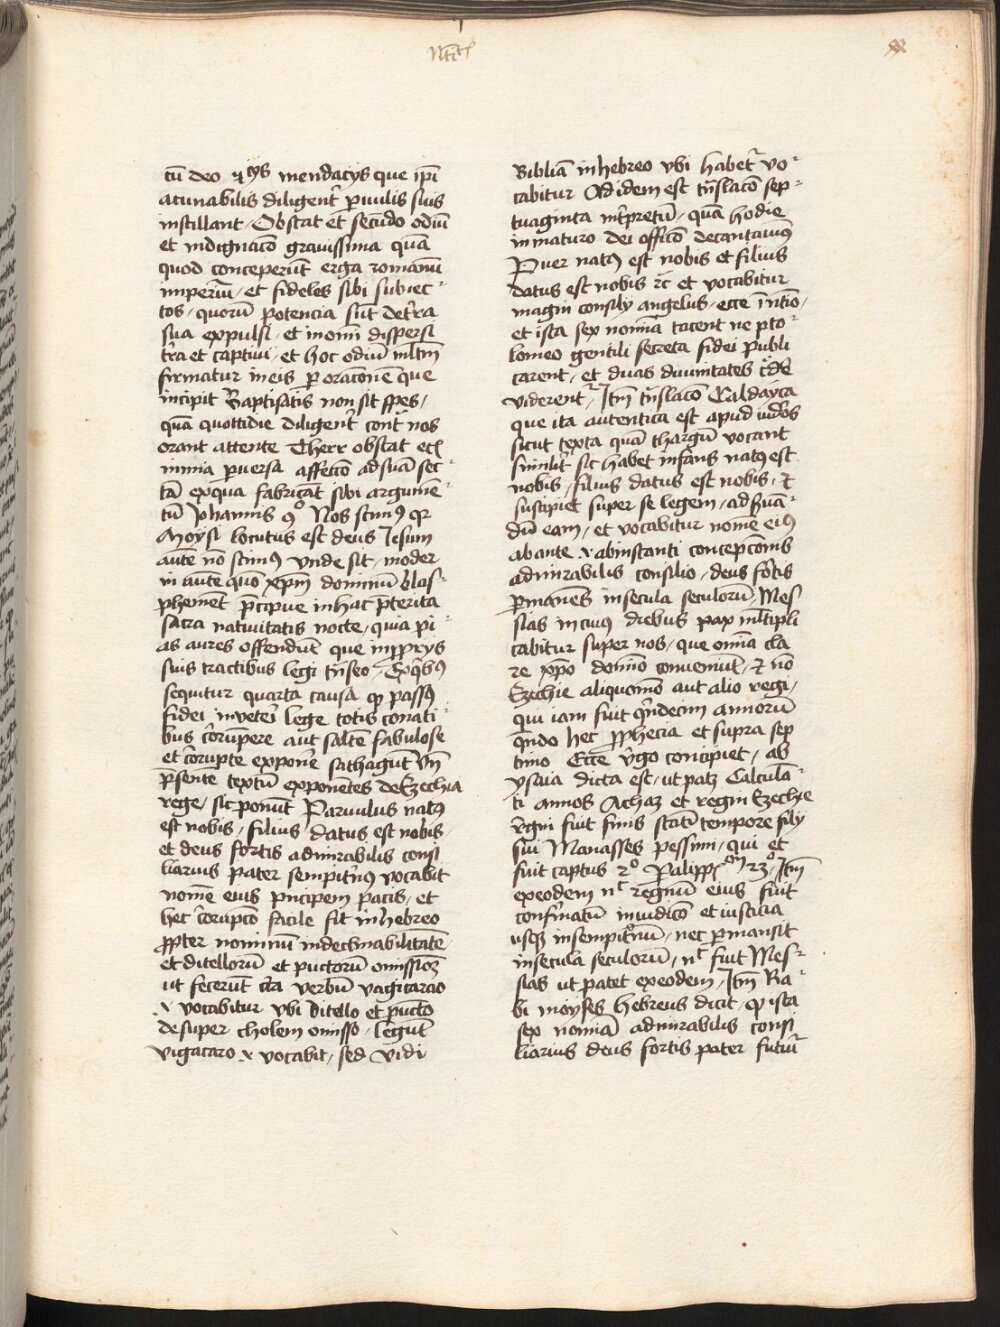 tū deo ⁊ ijs mendacijs que ip̄i
acunabilis diligent̉ puulis suis
instillant / Obstat et secūdo odiū
et indignacō grauissima quā
quod conceperūt erga romanū
imperiū / et fideles sibi subiec-
tos / quorū potencia sūt de tr̄ra
sua expulsi / et in om̄i dispersi
tr̄ra et captiui / et hoc odiū ml̄tm
firmatur in eis p oracōnem que
incipit Baptisatis non sit spes /
quā quottidie diligent̉ cont̉ nos
orant attente Ther̄ obstat eciā
nimia puersa affectio ad suā sec-
tā ex qua fabricāt sibi argumē-
tū Johannis 9° Nos scim9 qr
Moysi locutus est deus Jesum
autē nō scim9 vnde sit / moder
ni autē quo xp̄m dominū blas-
phemēt p̄cipue in hac p̄terita
sacra natiuitatis nocte / quia pi-
as aures offendūt que in pp̄rijs
suis tractibus legi tn̄seo / Ex qb9
sequitur quarta causa qp passus
fidei in veteri lege totis conati-
bus cor̄upere aut saltē fabulose
et cor̄upte exponē sathagūt Vn̄
p̄sentē textū exponētes de Ezechia
rege / sic ponūt Paruulus nat9
est nobis / filius datus est nobis
et deus fortis admirabilis consi
liarius pater sempit̄n9 vocabit
nomē eius principem pacis / et
hec cor̄upcō facile fit in hebreo
pp̄ter nominū indeclinabilitatē
et ditellorū et pūctorū omissiōz
ut fecerūt cū verbū vagicarao
.v vocabitur vbi ditello et pūcto
desuper cholem omisso / legūt
vigacaro .v vocabit / sed vidi
Bibliā in hebreo vbi habet̉ vo-
cabitur Ad idem est tn̄slacō sep-
tuaginta int̉pretū / quā hodie
in maturo dei officō decantauim9
Puer nat9 est nobis et filius
datus est nobis ⁊c et vocabitur
magni consilij angelus / ecce
et ista sex nomīa tacent ne pto-
lomeo gentili secreta fidei publi
carent / et duas diuinitates
viderent̉ / Jtm̄ tn̄slacō Caldayca
que ita autentica est apud iud̄os
sicut texta quā thargū vocant
similit̉ sic habet infans nat9 est
nobis / filius datus est nobis / et
suscipiet super se legem / ad s̄uā-
dū eam / et vocabitur nomē ei9
ab ante .v. ab instanti concepcōnis
admirabilis consilio / deus fortis
pmanēs in secula seculorū / Mes
sias in cui9 diebus pax ml̄tipli
cabitur super nos / que omīa cla
re xpo domīo conueniūt / et nō
Ezechie aliquomō aut alio regi /
qui iam fuit qn̄decim annorū
qn̄do hec pp̄hecia et supra sep
timo Ecce v̉go concipiet / ab
ysaia dicta est / ut patz Calculā-
ti annos Achaz et regni Ezechie
Regni fuit finis statī tempore filij
sui Manasses pessimi / qui et
fuit captus 2° Palipp̄ 23° / Jtm̄
ex eodem nc̄ regnū eius fuit
confirmatū in iudicō et iusticia
usqz in sempit̉nū / nec pmansit
in secula seculorū / nc̄ fuit Mes-
sias ut patet ex eodem / Jtm̄ Ra-
bi moyses hebreus dicit / qp ista
sex nomīa admirabilis consi
liarius deus fortis pater futuri